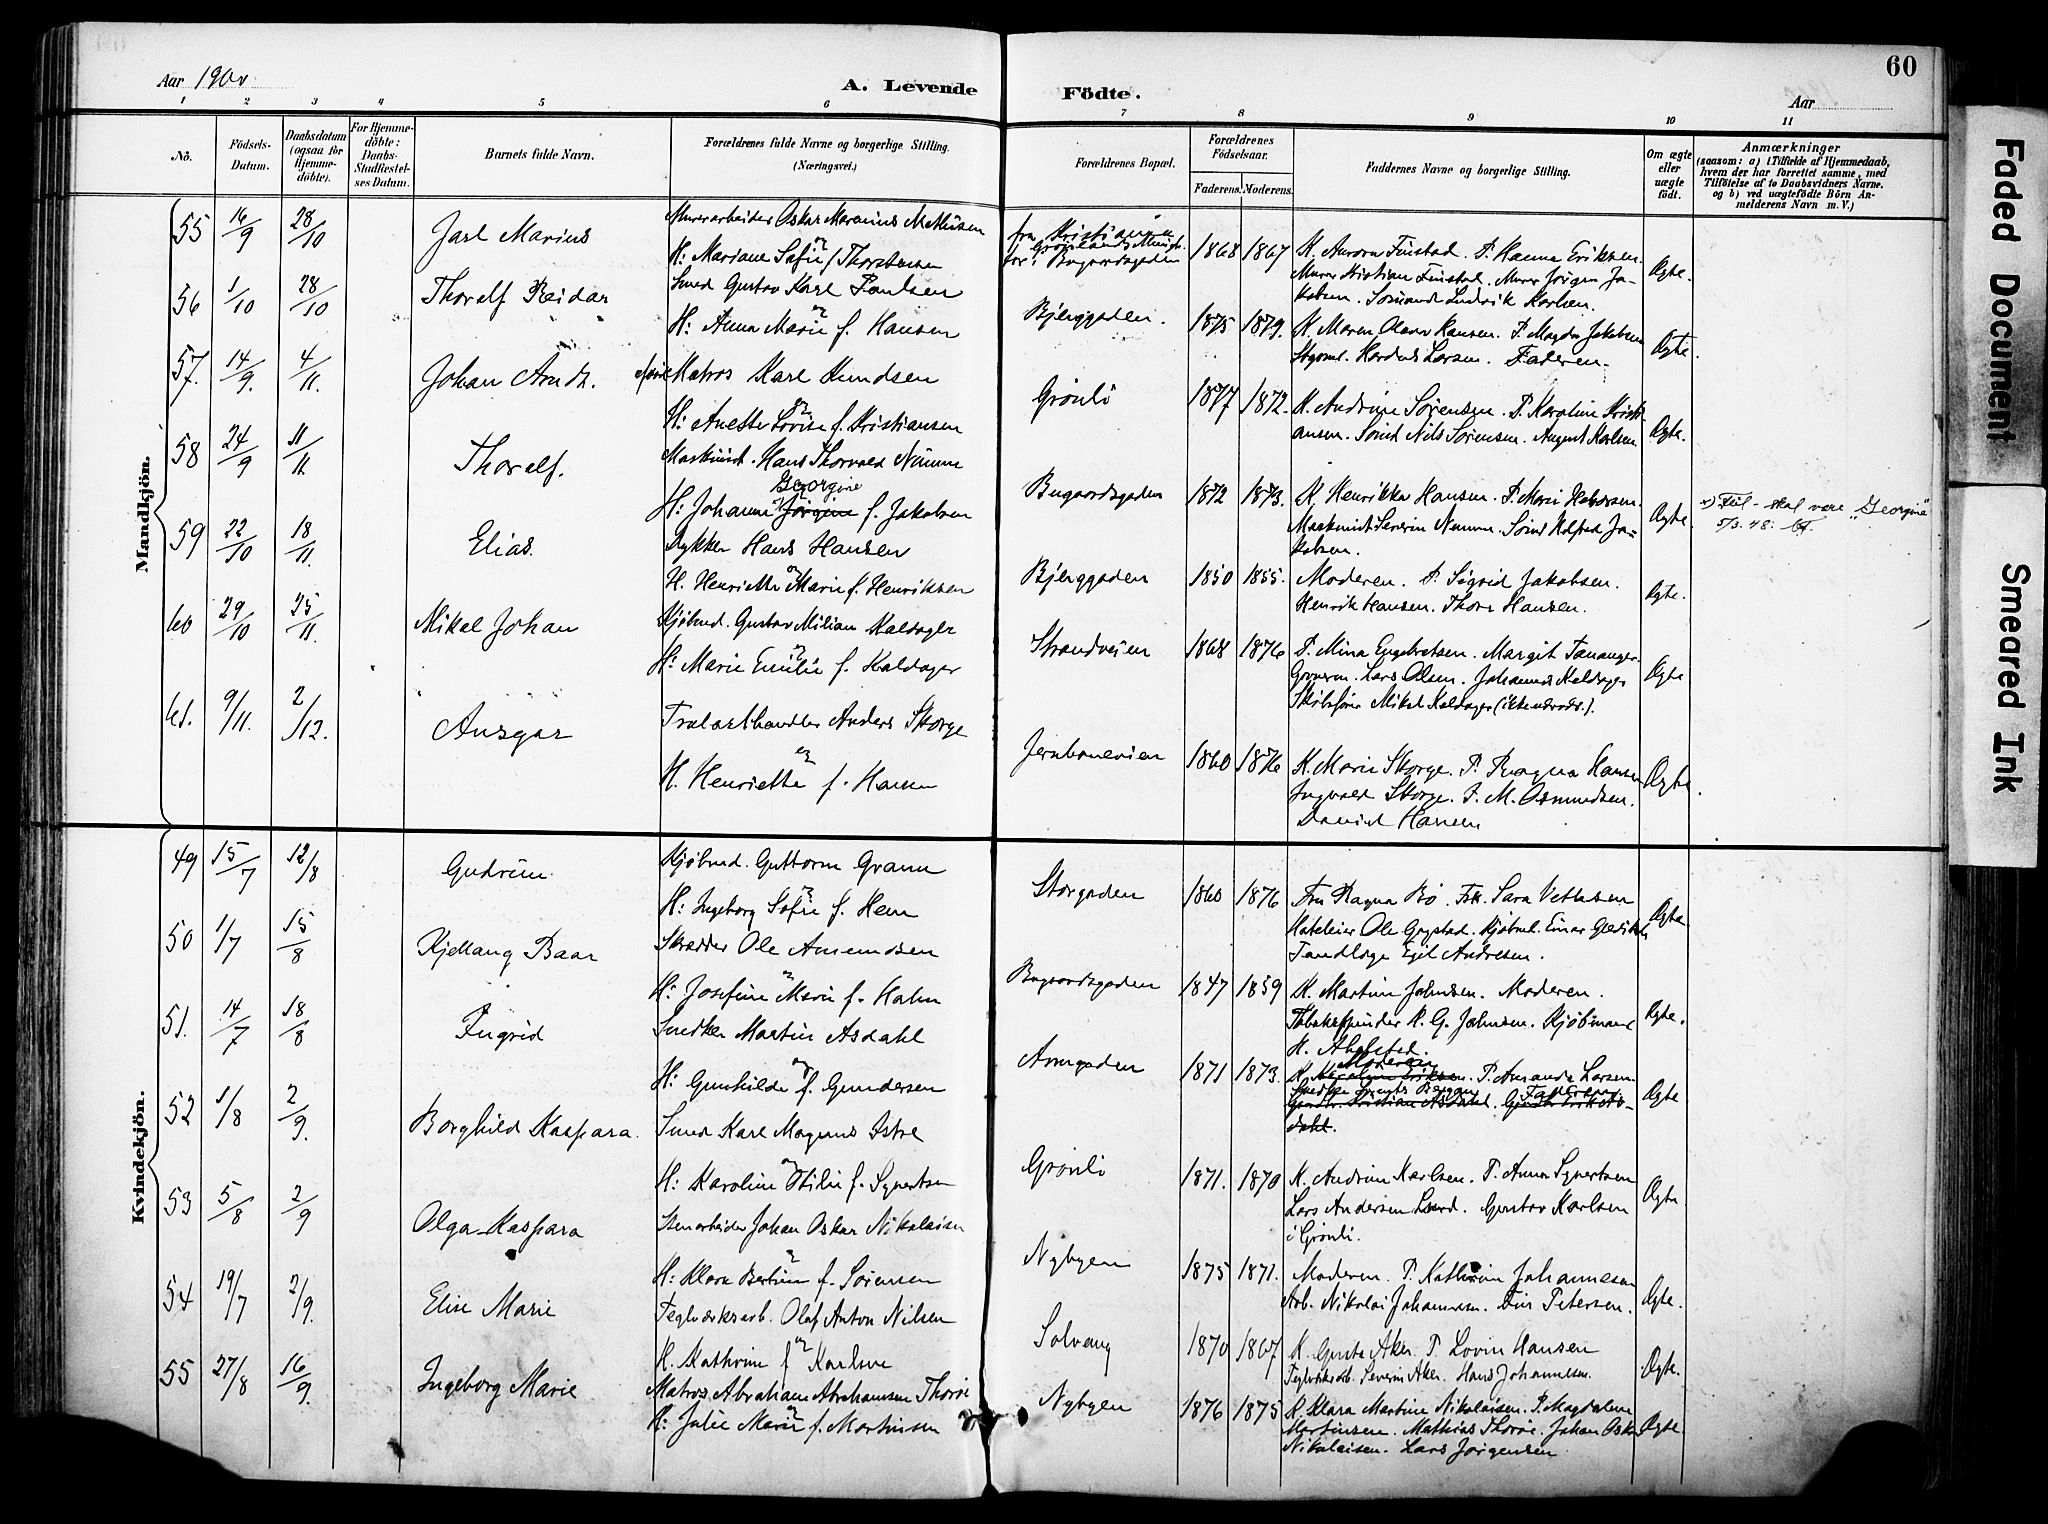 60
Aar 1900
A. Levende Födte.
Aar
1 2 3 4 5 6 7 8 9 10 11
No.
Födsels-Datum.
Daabsdatum (ogsaa for Hjemme-döbte).
For Hjemme-döbte: Daabs-Stadfæstel-ses Datum.
Barnets fulde Navn.
Forældrenes fulde Navne og borgerlige Stilling. (Næringsvei.)
Forældrenes Bopæl.
Forældrenes Födselsaar.
Faderens. Moderens.
Faddernes Navne og borgerlige Stilling.
Om ægte eller uægte födt.
Anmærkninger
(saasom: a) i Tilfælde af Hjemmedaab, hvem der har forrettet samme, med Tilföielse af to Daabsvidners Navne. og b) ved uægtefödte Börn An-melderens Navn m. V.)
Mandkjön.
55 16/9 28/10 Jarl Marius
Murerarbeider Oskar Marenius Mathisen
H: Mariane Sofie f. Thorstensen
fra Kristiania
Bugaardsgaden 1868 1867
K. Aurora Finstad. P. Hanna Eriksen.
Murer Kristian Finstad. Murer Jörgen Ja-
kobsen. Sömand Ludvik Karlsen.
Ægte.
56 1/10 28/10 Thoralf Reidar
Smed Gustav Karl Paulsen
H: Anna Marie f. Hansen
Bjerggaden. 1875 1879.
K. Maren Hansen. P. Magda Jakobsen
Larsen. Faderen.
Ægte.
57. 14/9. 4/11. Johan Arndt.
Matros Karl Knudsen
H: Anette Lovise f. Kristiansen
Grönli 1877 1872.
K. Andrine Sörensen. P. Karoline Kristi-
ansen. Nils Sörensen. August Karlsen.
Ægte.
58 24/9 11/11. Thoralf.
Maskinist. Hans Thorvald Nümme
Georgine
H: Johanne Jörgine f. Jakobsen
Bugaardsgaden 1872 1873.
K. Henrikke Hansen. P. Marie Halvorsen.
Maskinist Severin Nümme. Ja-
kobsen.
Ægte.
x) Feil - skal være "Georgine"
5/3. 48.
59 22/10 18/11. Elias.
Rykker Hans Hansen
H. Henriette Marie f. Henriksen
Bjerggaden 1850 1855.
Moderen. P. Sigrid Jakobsen.
Henrik Hansen. Thora Hansen.
Ægte.
60 29/10 25/11. Mikal Johan
Kjöbmd. Gustav Milian Kaldager
H: Marie Emilie f. Kaldager
Strandveien 1868 1876
P. Mina Engebretsen. Margit Tananger.
Lars Olsen. Johannes Kaldager
Mikal Kaldager
Ægte
61. 9/11. 2/12. Ansgar
Trælasthandler Anders Skorge
H. Henriette f. Hansen
Jernbaneveien 1860 1876
K. Marie Skorge. P. Ragna Hansen
Ingvald Skorge. P. M. Osmundsen.
Daniel Hansen
Ægte.
Kvindekjön.
49 15/7 12/8 Gudrun
Kjöbmd. Guttorm Grann
H: Ingeborg Sofie f. Hem
Storgaden 1860 1876
Fru Ragna Bö. Frk. Sara Vettesen
Hateleier Ole Gogstad. Kjöbmd. Einar
Tandlæge Egil Andresen.
Ægte
50 1/7 15/8 Kjellaug Baar
Skrædder Ole Amundsen
H: Josefine Marie f. Holm
Bugaardsgaden 1847 1859
K. Martine Johnsen. Moderen.
Tobakspinder K. G. Johnsen. Kjöbmand
H.
Ægte.
51. 14/7 18/8 Ingrid
Snedker Martin Asdahl
H: Gunhilde f. Gundersen
1871 1873.
Moderen
P. Amanda Larsen.
Faderen
Ægte
52 1/8 2/9. Borghild Kaspara.
Smed Karl Magnus Istre
H: Karoline Otilie f. Syvertsen
Grönli 1871. 1870
K. Andrine Karlsen. P. Anna Syvertsen
Lars Andersen Lund. Gustav Karlsen
i Grönli.
Ægte
53 5/8 2/9 Olga Kaspara
Stenarbeider Johan Oskar Nikolaisen
H: Klara Bertine f. Sörensen
Nybyen 1875 1871.
Moderen. P. Kathrine Johannesen
Arb. Nikolai Johannesen. Petersen.
Ægte.
54 19/7 2/9. Elise Marie
Teglværksarb. Olaf Anton Nilsen
H. Kathrine f. Karlsen
Solvang 1870 1867
K. Aker. P. Lovise Hansen
Teglværksarb. Severin Aker. Hans Johannesen.
Ægte.
55 27/8 16/9. Ingeborg Marie
Matros Abraham Abrahamsen Thoröe
H: Julie Marie f. Martinsen
Nybyen 1876 1875
K. Klara Martine Nikolaisen. P. Magdalene
Martinsen. Mathias Thoröe. Johan Oskar
Nikolaisen. Lars Jörgensen
Ægte.
Faded Document
Smeared Ink